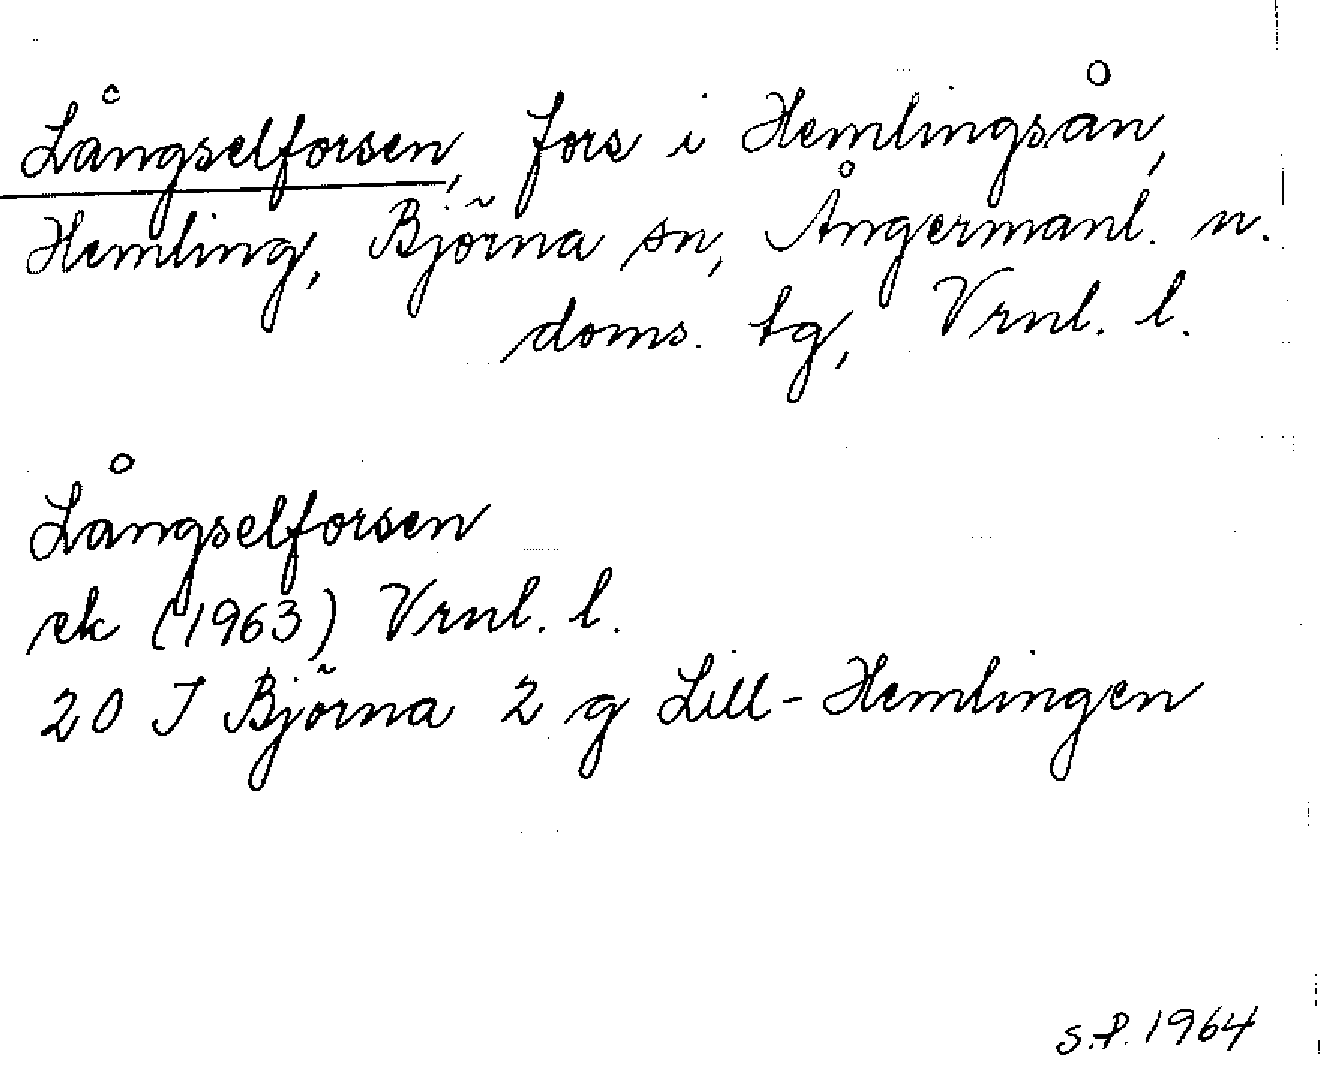 Långselforsen, fors i Hemlingsån,
Hemling, Björna sn, Ångermanl. n.
doms. tg, Vrnl. l.
Långselforsen
ek (1963) Vrnl. l.
20 I Björna 2 g Lill-Hemlingen
S.P. 1964